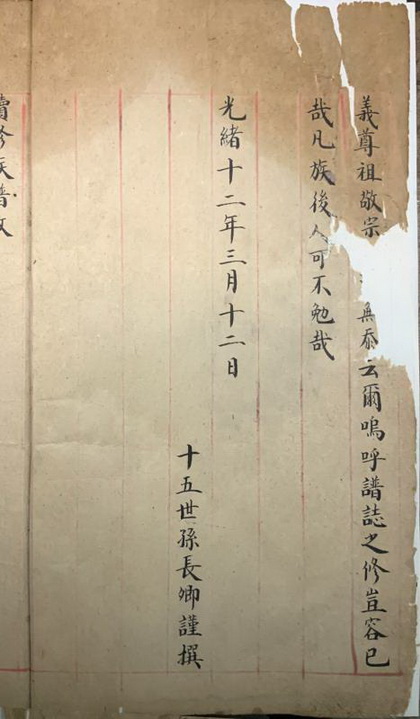 義尊祖敬宗無忝云爾嗚呼譜誌之修豈容已
哉凡族後人可不勉哉
光緒十二年三月十二日
十五世孫長卿謹撰